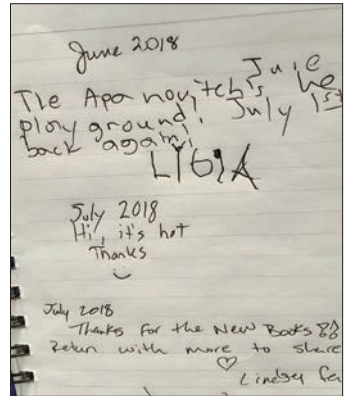 June 2018
June
The Apanovitch's he
play ground! July 1st
back again!
LIGIA
July 2018
Hi, it's hot
Thanks
July 2018
Thanks for the New Books
Return with more to share
Lindsey